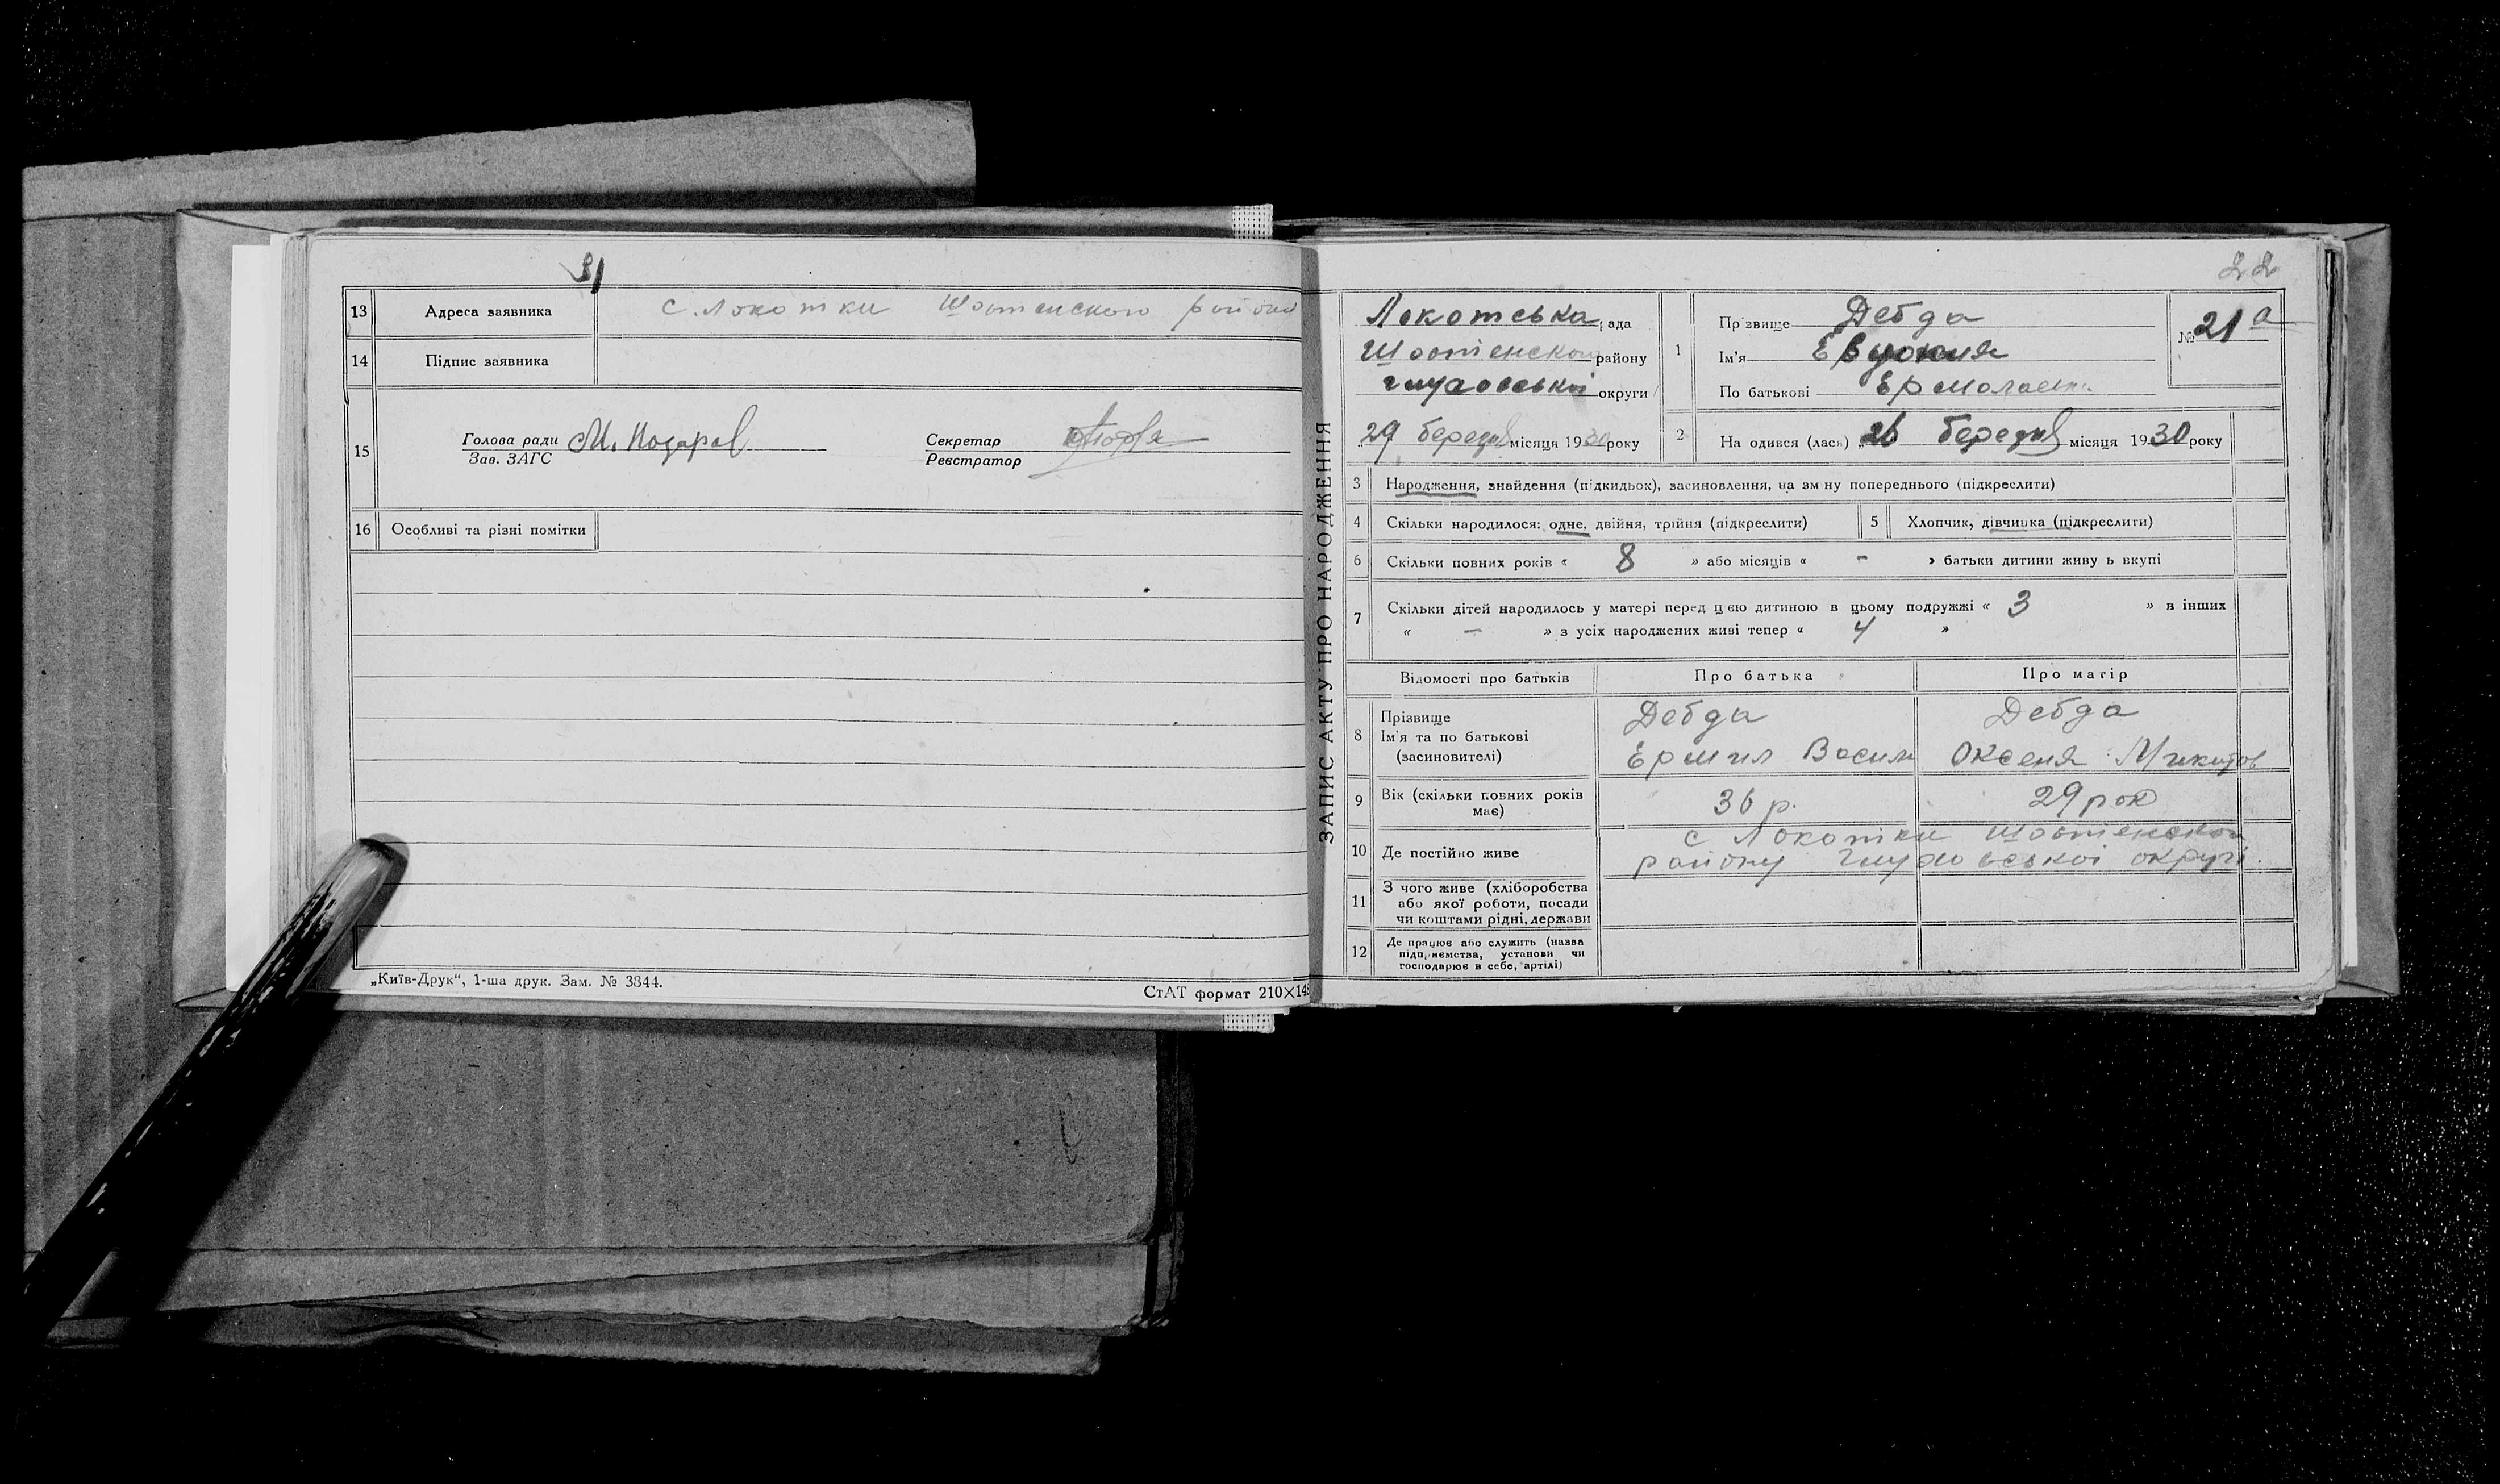 31
13 Адреса заявника с. Локотки Шостенского район
14 Підпис заявника
15 Голова ради М. Кодаров Секретар
Зав. ЗАГС Реєстратор
16 Особливі та різні помітки
„Київ-Друк“, 1-ша друк. Зам. № 3844.
СтАТ формат 210×148
ЗАПИС АКТУ ПРО НАРОДЖЕННЯ
22
Локотська рада
Шостенског району
глуховської округи
29 березня місяця 1930 року
1 Прізвище Дебда
Ім'я Евдокия
По батькові Ермолаевн
№ 21а
2 Народився (лася) „26 березня місяця 1930 року
3 Народження, знайдення (підкидьок), засиновлення, на зміну попереднього (підкреслити)
4 Скільки народилося: одне, двійня, трійня (підкреслити) 5 Хлопчик, дівчинка (підкреслити)
6 Скільки повних років « 8 » або місяців « - » батьки дитини живуть вкупі
7 Скільки дітей народилось у матері перед цією дитиною в цьому подружжі « 3 » в інших
« - » з усіх народжених живі тепер « 4 »
Відомості про батьків Про батька Про матір
8 Прізвище Дебда Дебда
Ім'я та по батькові Ермил Васил Оксеня Микитов
(засиновителі)
9 Вік (скільки повних років має) 36 р. 29 рок
10 Де постійно живе с Локотки Шостенског
району Глуховської округи.
11 З чого живе (хліборобства
або якої роботи, посади
чи коштами рідні, держави
12 Де працює або служить (назва
підприємства, установи чи
господарює в себе, артілі)